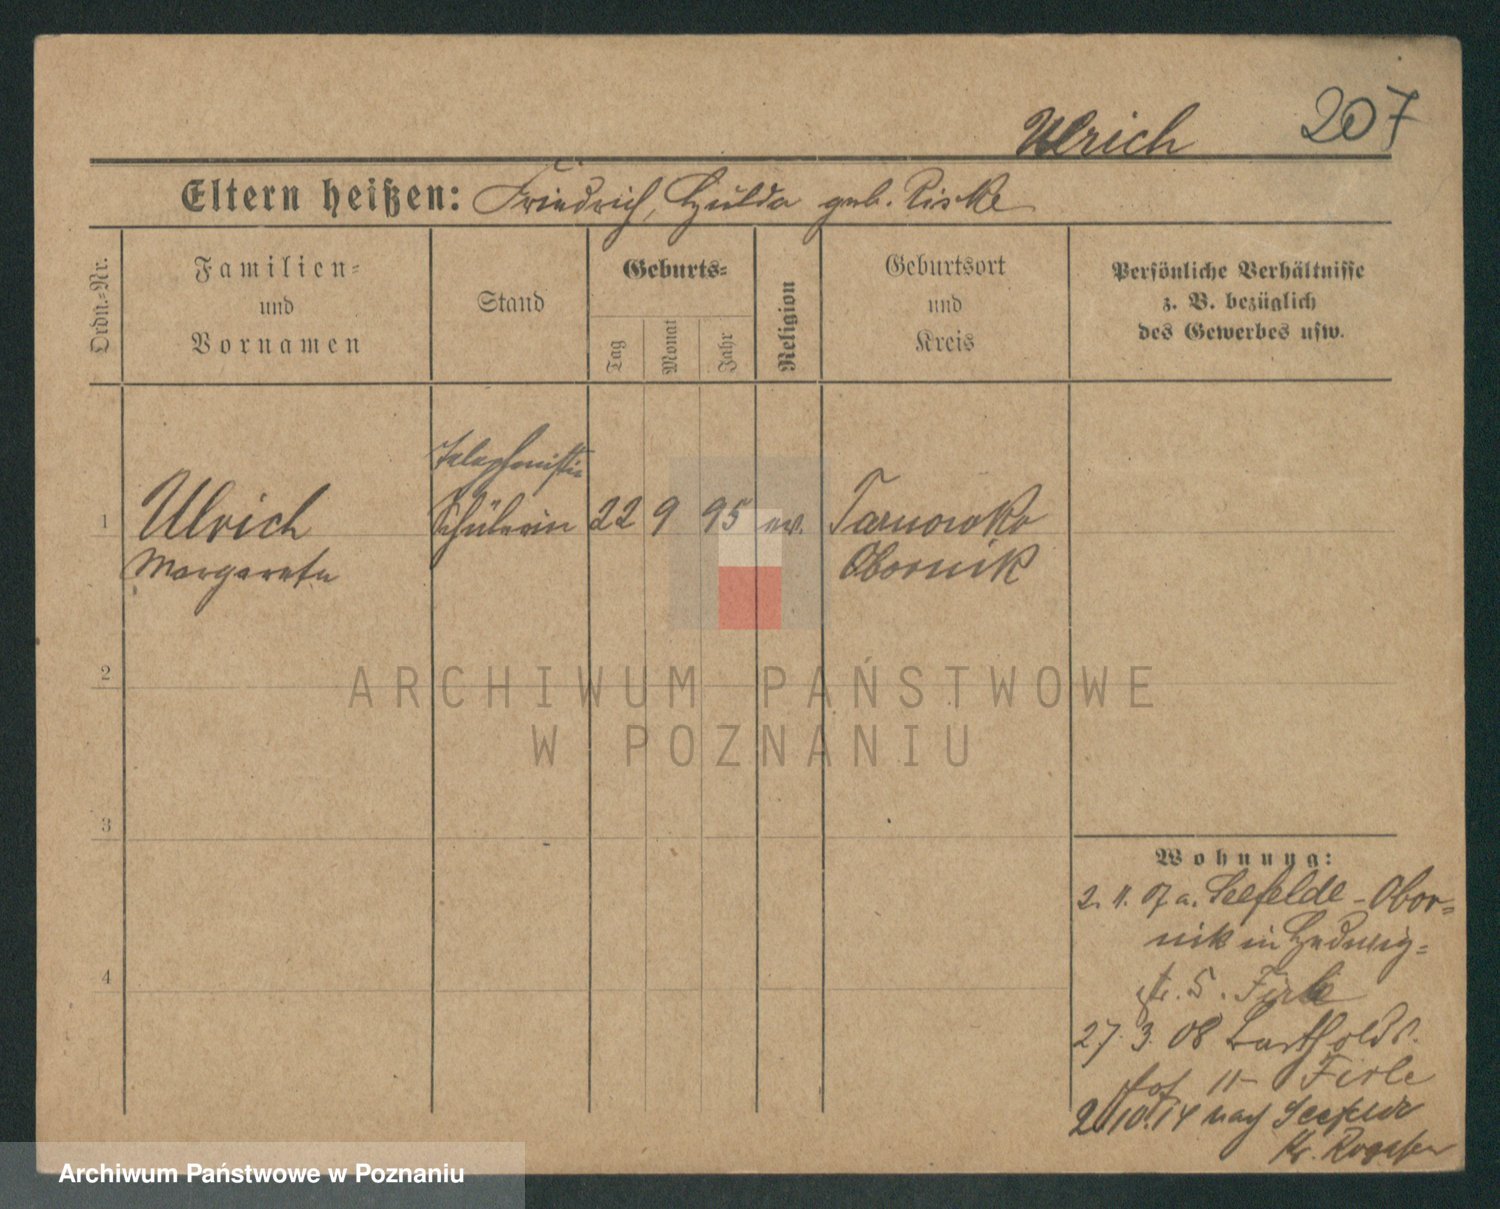 Ulrich 207
Eltern heißen: Friedrich, Hulda geb. Piske
Ordn.-Nr.
Familien-
und
Vornamen
Stand
Geburts-
Tag
Monat
Jahr
Religion
Geburtsort
und
Kreis
Persönliche Verhältnisse
z. B. bezüglich
des Gewerbes usw.
Telephonistin
1 Ulrich Schülerin 22 9 95 ev. Tarnowko
Margarete Obornik
2
ARCHIWUM PAŃSTWOWE
W POZNANIU
3
Wohnung:
2. 11. 07 a. Seefelde - Obor-
nik in Hedwig-
str. 5. Firle
27. 3. 08 Bartholds.
hof 11 Firle
4
2/10.14 nach Seefelde
Kr.
Archiwum Państwowe w Poznaniu